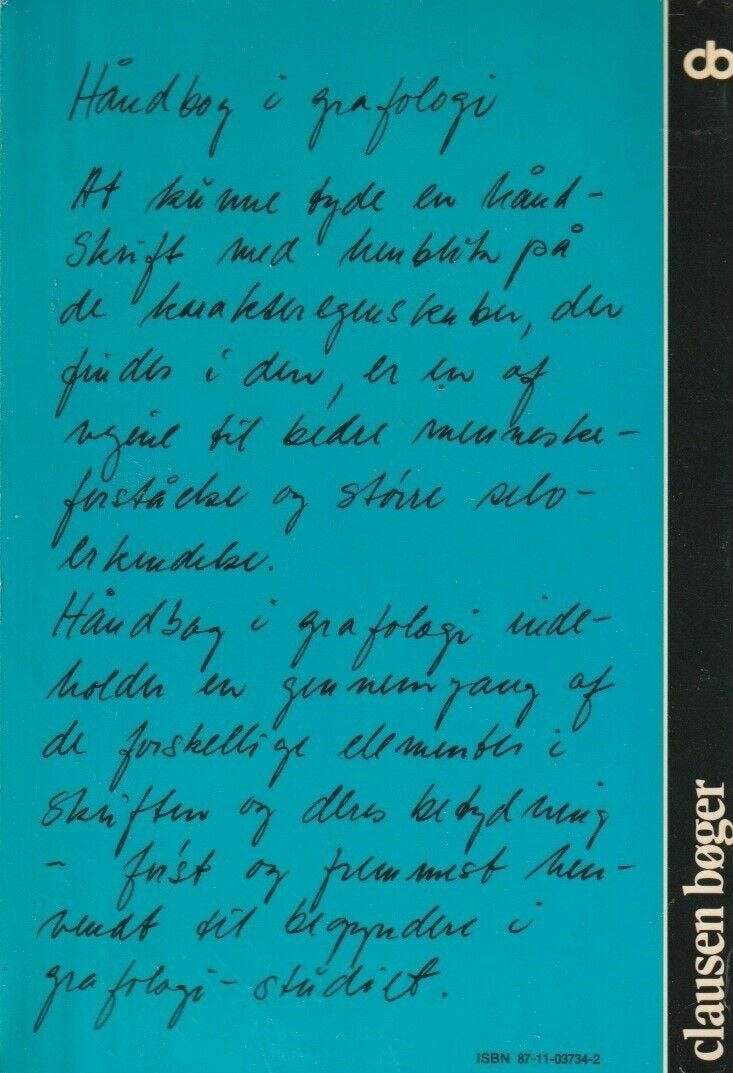 Håndbog i grafologi
At kunne tyde en hånd-
skrift med henblik på
de karakteregenskaber, der
findes i den, er en af
vejene til bedre menneske-
forståelse og større selv-
erkendelse.
Håndbog i grafologi inde-
holder en gennemgang af
de forskellige elementer i
skriften og deres betydning
- først og fremmest hen-
vendt til begyndere i
grafologi-studiet.
ISBN 87-11-03734-2
cb
clausen bøger